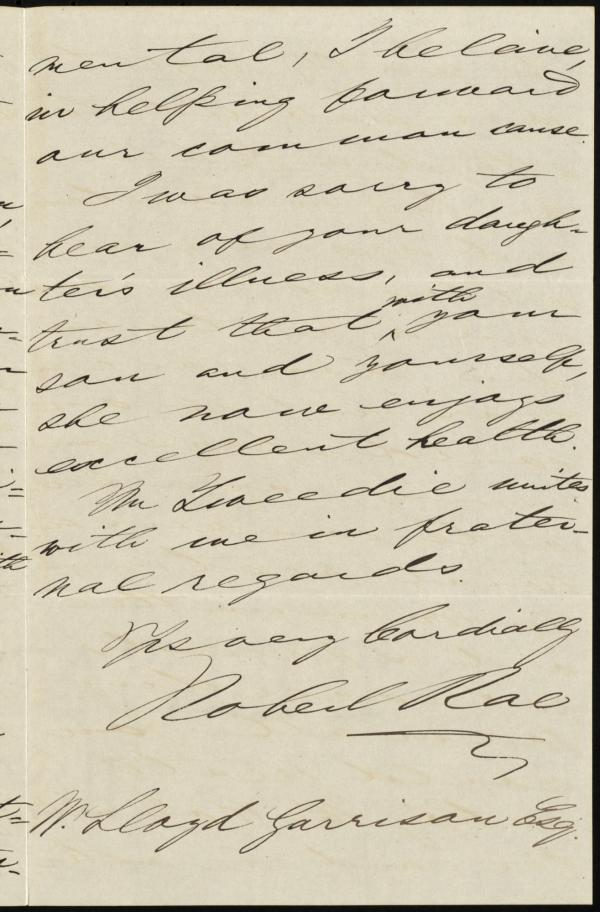 mental, I believe,
in helping forward
our common cause.
I was sorry to
hear of your daugh-
ter's illness, and
trust that with your
son and yourself,
she now enjoys
excellent health.
Mr Tweedie unites
with me in frater-
nal regards.
Yrs very Cordially
Robert Rae
Wm. Lloyd Garrison Esq.